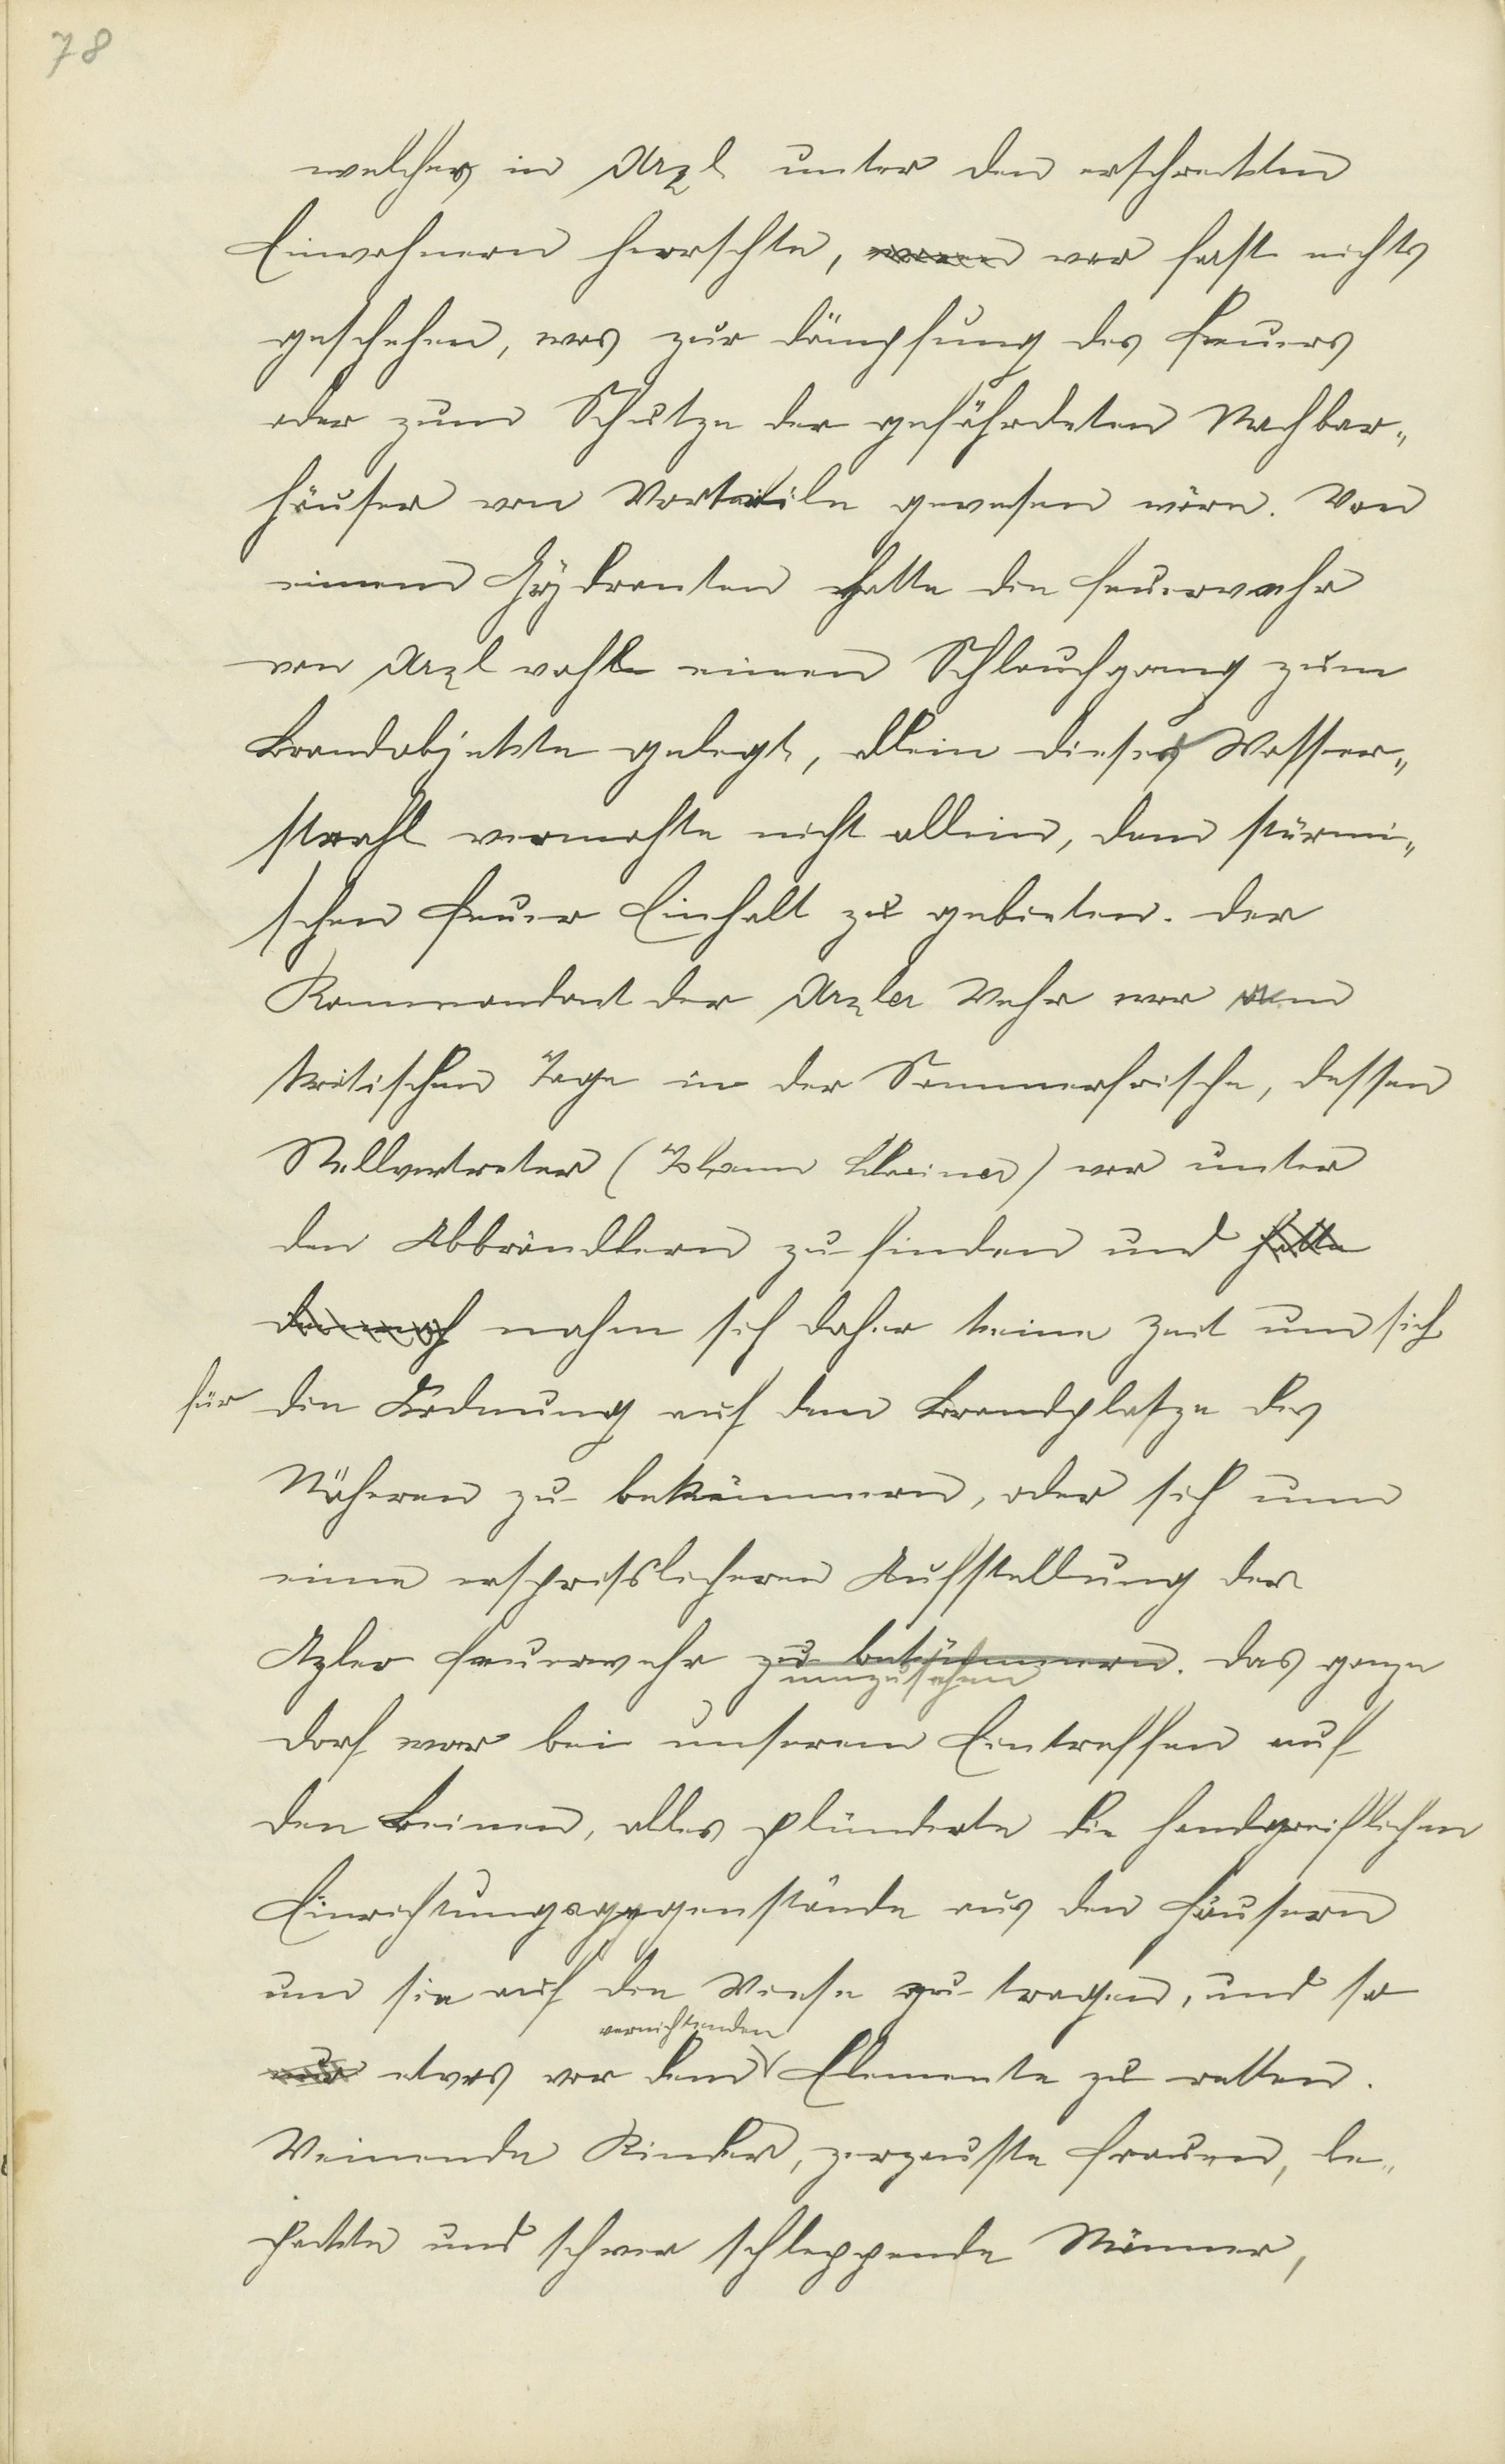 78
welcher in Arzl unter den erschreckten
Einwohnern herrschte, war fast nichts
geschehen, was zur Dämpfung des Feuers
oder zum Schutze der gefährdeten Nachbar-
häuser von Vorteile gewesen wäre. Von
einem Hydranten hatte die Feuerwehr
von Arzl wohl einen Schlauchgang zum
Brandobjekte gelegt, allein dieser Wasser-
strahl vermochte nicht allein, dem stürmi-
schen Feuer Einhalt zu gebieten. Der
Kommandant der Arzler Wehr war am
kritischen Tage in der Sommerfrische, dessen
Stellvertreter (Johann) war unter
den Abbrändlern zu finden und hatte
demnach nahm sich daher keine Zeit um sich
für die Ordnung auf dem Brandplatze des
Näheren zu bekümmern, oder sich um
eine erspriesslicheren Aufstellung der
Azler Feuerwehr zu bekümmern. Das ganze
umzusehen
Dorf war bei unserem Eintreffen auf
den Beinen, alles plünderte die handgreiflichen
Einrichtungsgegenstände aus den Häusern
um sie auf die Wiese zu tragen, und so
vernichtenden
nur etwas vor dem Elemente zu retten.
Weinende Kinder, zerzauste Frauen, be-
packte und schwer schleppende Männer,